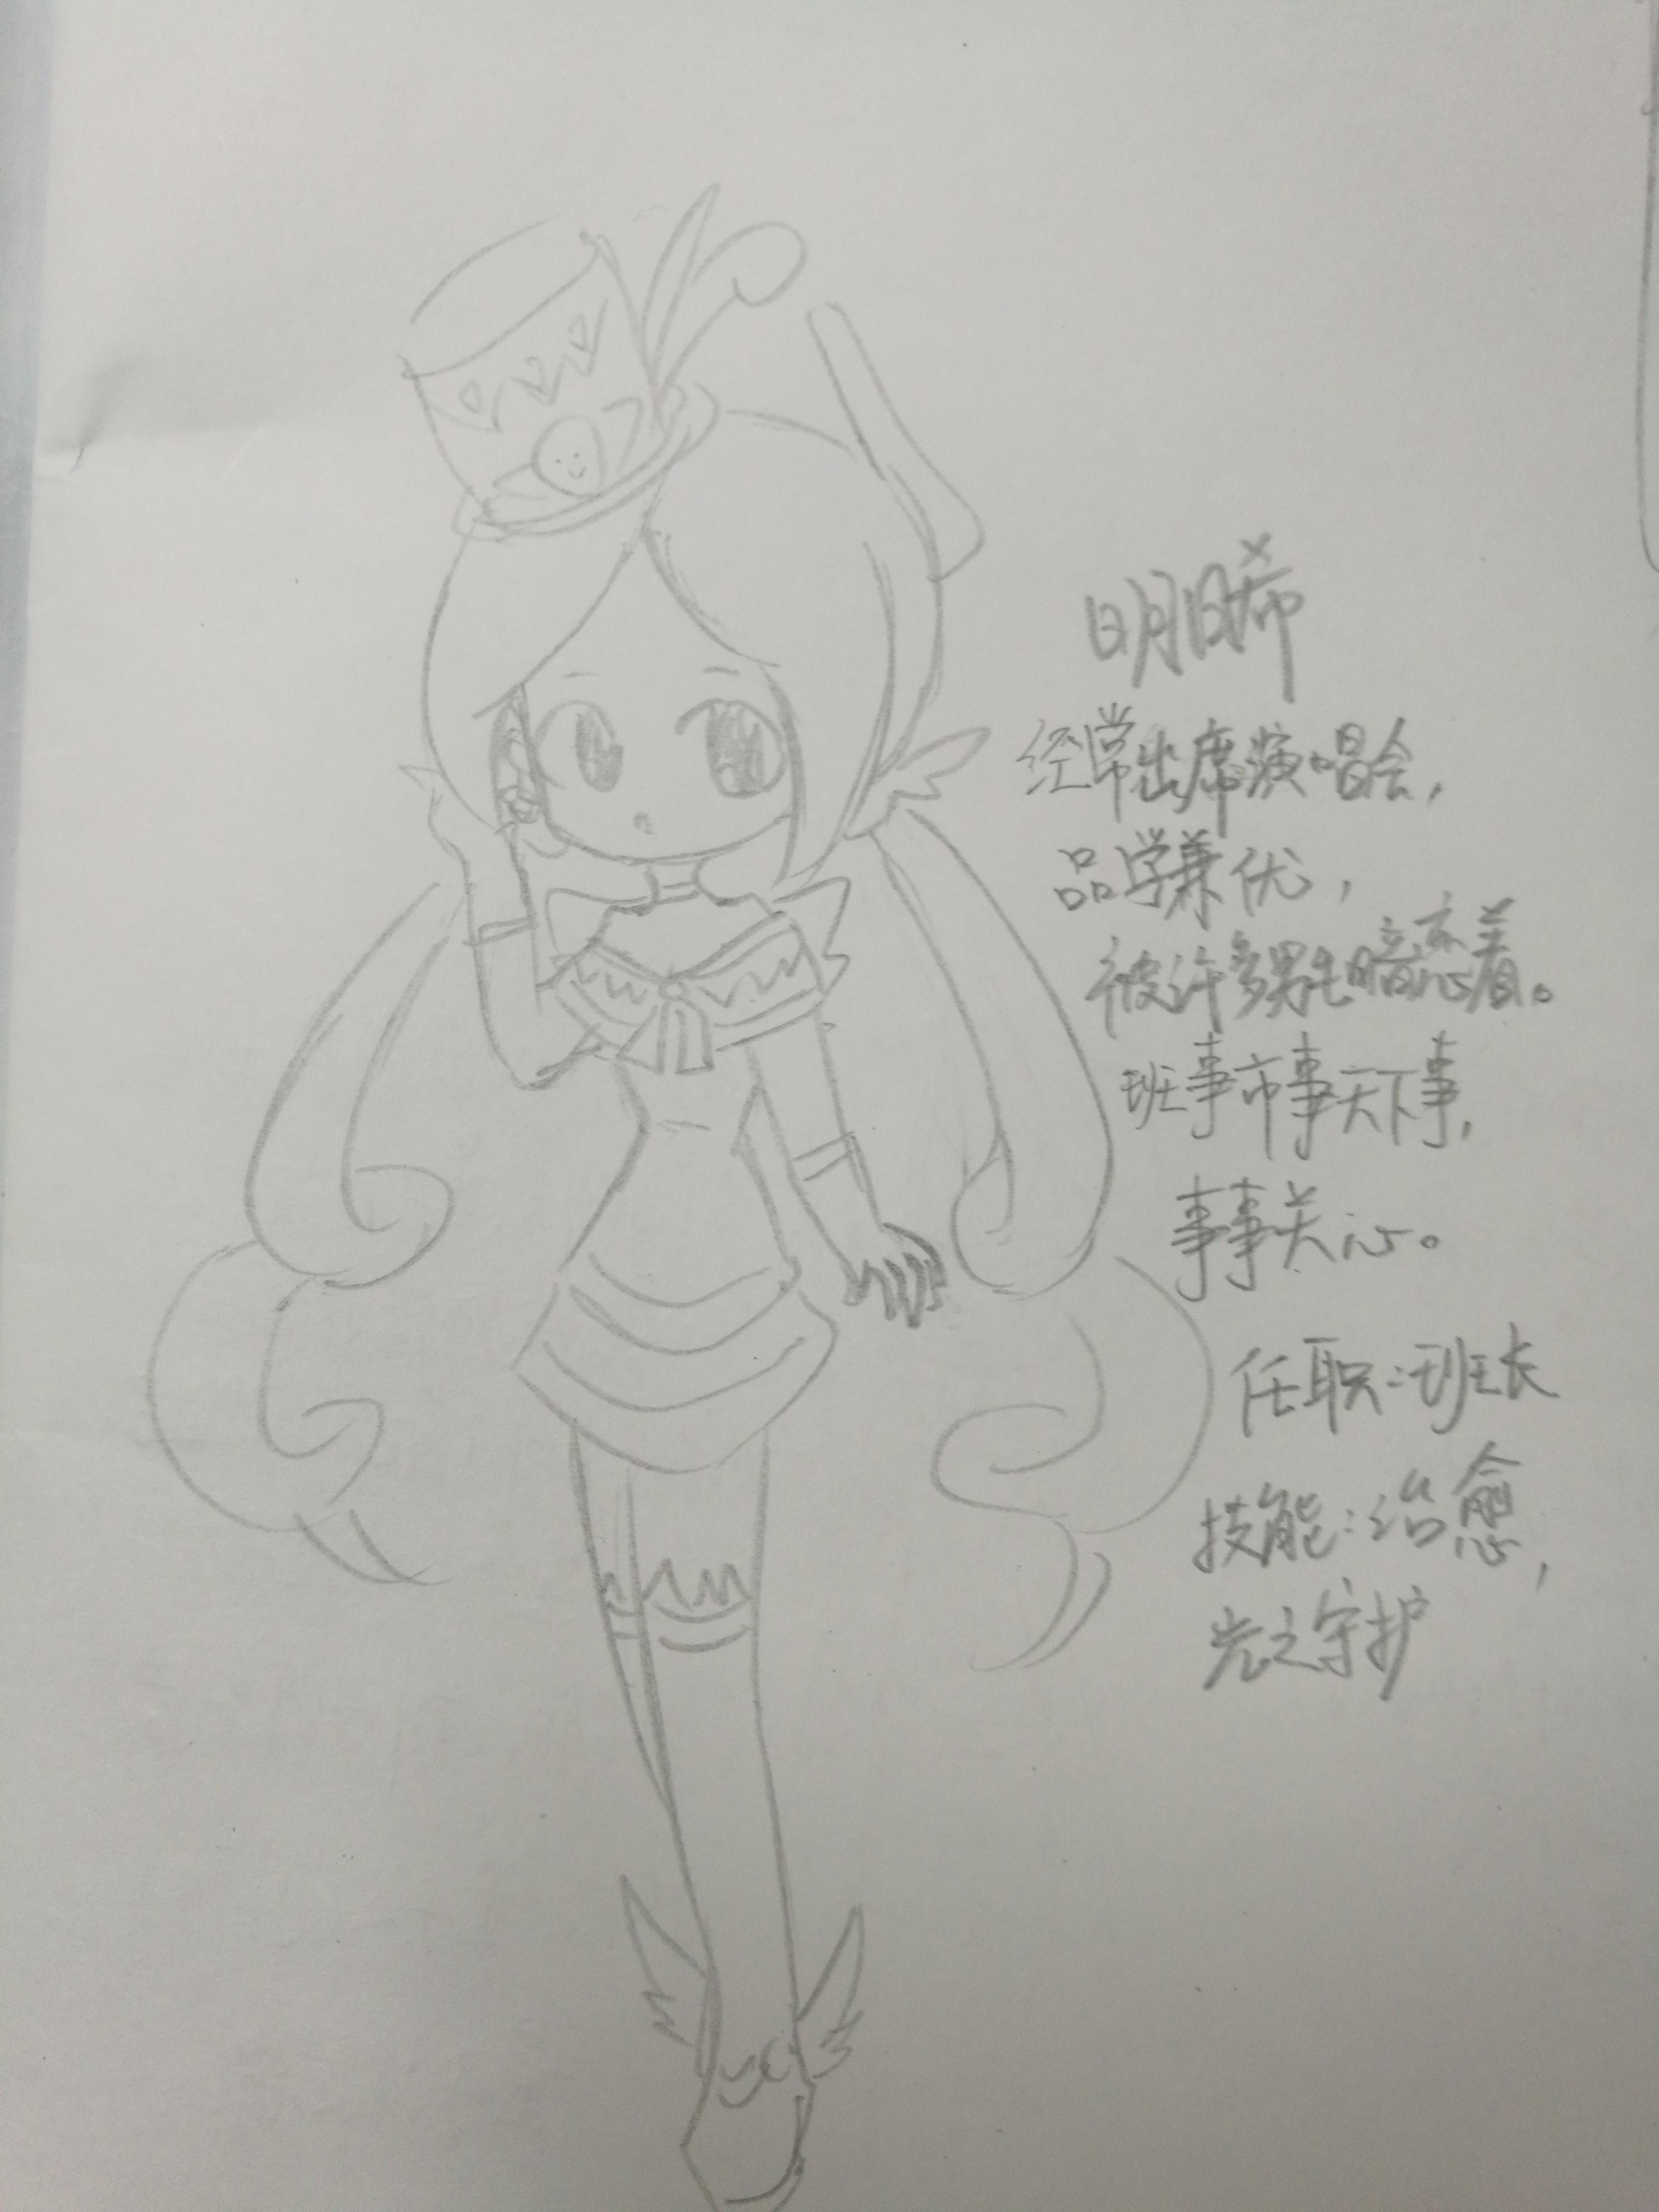 明晞
经常出席演唱会，
品学兼优，
被许多男生暗恋着。
班事市事天下事，
事事关心。
任职：班长
技能：治愈，
光之守护